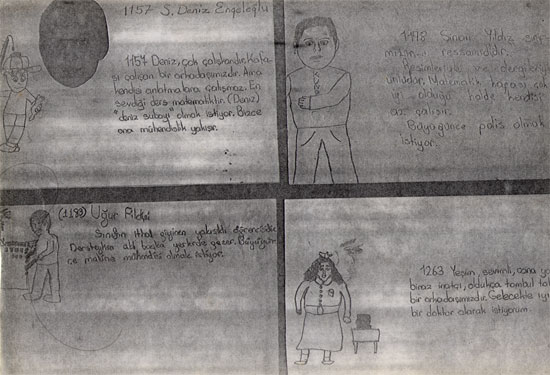 1157 S. Deniz Engeloğlu
1157 Deniz, çok çalışkandır. Kafa-
sı çalışan bir arkadaşımızdır. Ama
kendisi anlatmalara çalışmaz. En
sevdiği ders matematiktir. (Deniz)
"deniz subayı" olmak istiyor. Bizce
ona mühendislik yakışır.
1498 Sinan Yıldız
ressamıdır.
Resimleriyle ve dergileriyle
ünlüdür. Matematik kafası çok
iyi olduğu halde kendisi
az çalışır.
Büyüyünce polis olmak
istiyor.
(1183) Uğur
Sınıfın giyinen yakışıklı öğrencisidir.
Dersteyken aklı başka yerlerde gezer. Büyüyün-
ce makine mühendisi olmak istiyor.
1263 sevimli, cana
biraz inatçı, oldukça tombul
bir arkadaşımızdır. Gelecekte iyi
bir doktor olarak istiyorum.